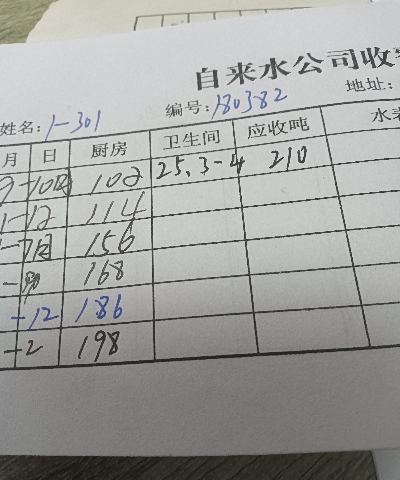 自来水公司收
姓名: 1-301 编号: 180382 地址:
月 日 厨房 卫生间 应收吨 水表
102 25.3-4 210
1-12 114
156
168
-12 186
-2 198